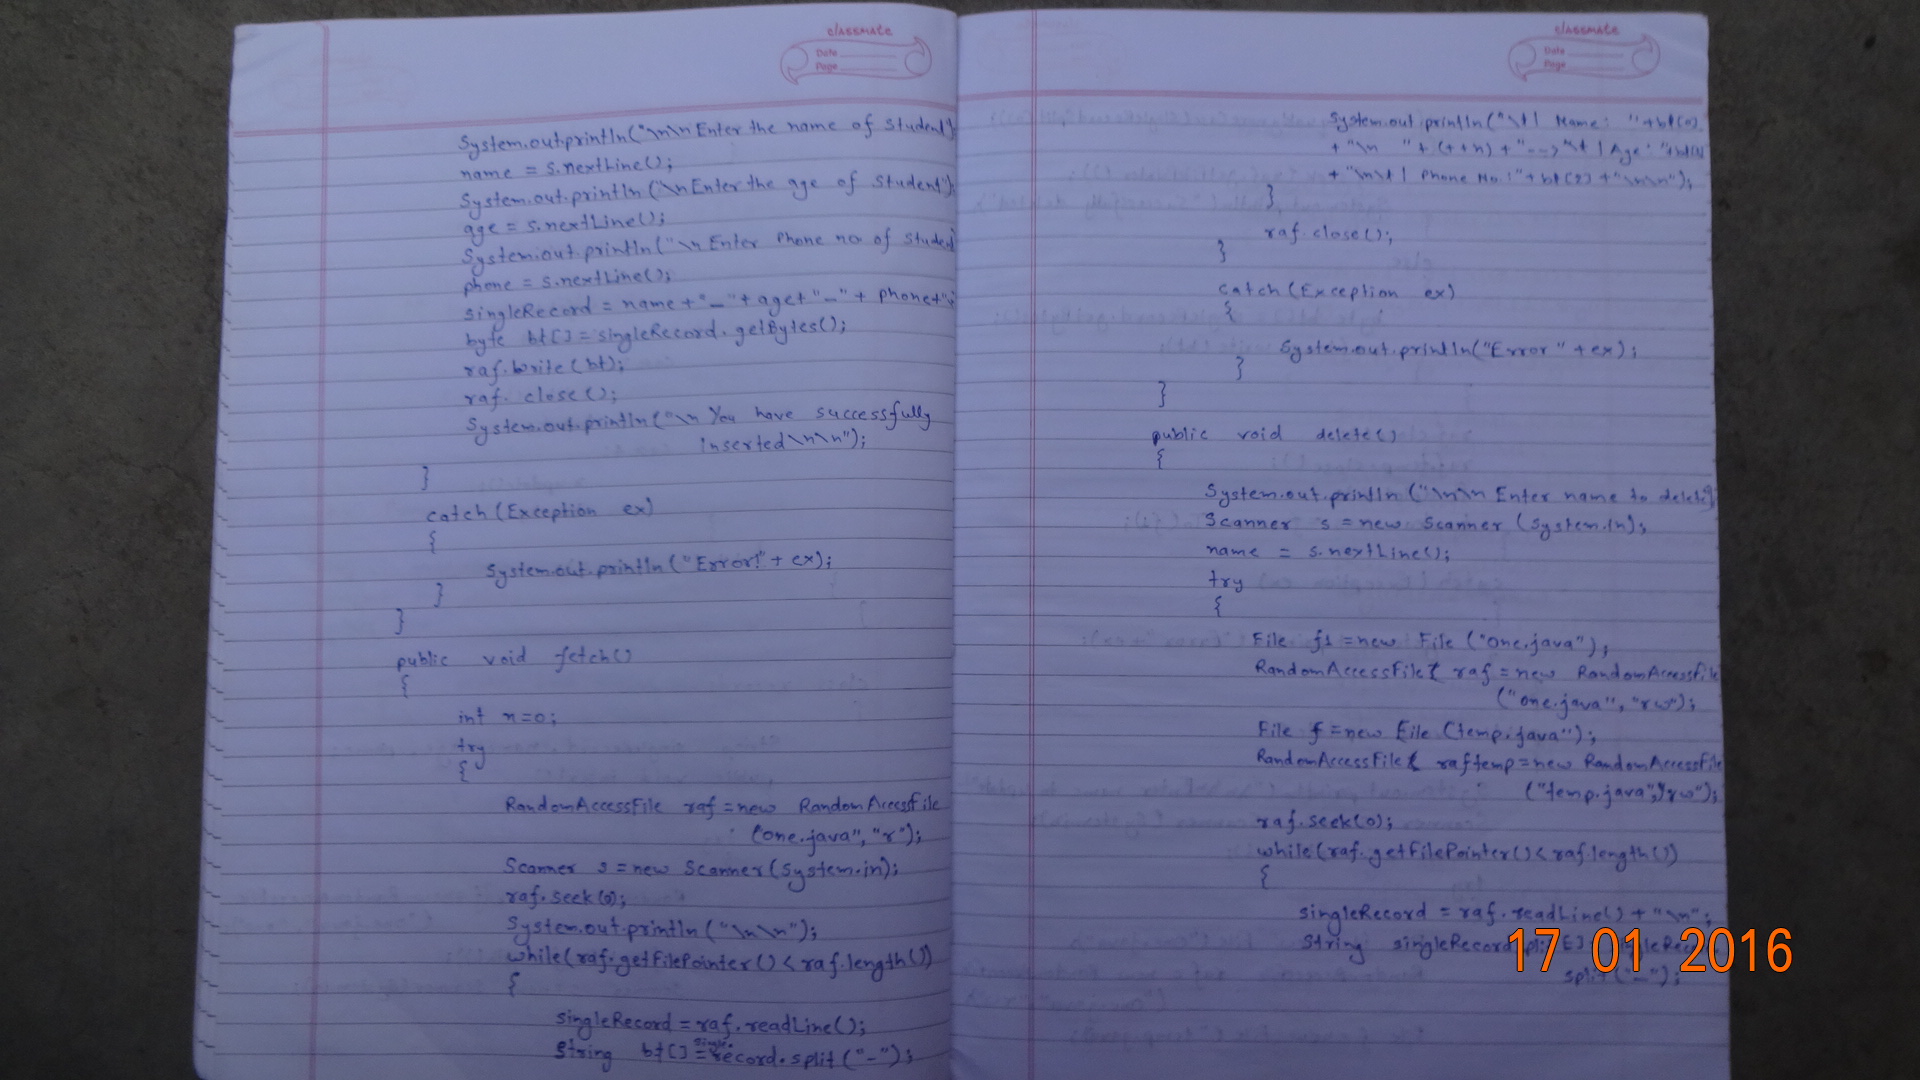 classmate
Date
Page
System.out.println("\n\n Enter the name of student
name = s.nextLine();
System.out.println("\n Enter the age of student");
age = s.nextLine();
System.out.println("\n Enter Phone no. of student
phone = s.nextLine();
singleRecord = name+"_"+age+"_"+ phone+"
byte bt[] = singleRecord.getBytes();
raf.write(bt);
raf. close();
System.out.println("\n You have successfully
inserted\n\n");
}
catch(Exception ex)
{
System.out.println("Error!"+ ex);
}
}
public void fetch()
{
int n=0;
try
{
RandomAccessFile raf = new RandomAccessFile
("one.java", "r");
Scanner s = new Scanner(System.in);
raf.seek(0);
System.out.println("\n\n");
while(raf.getFilePointer() < raf.length())
{
singleRecord = raf.readLine();
String bt[] = singleRecord.split("_");
classmate
Date
Page
System.out println("\t| Name: "+bt[0]
+"\n "+(++n)+"--> \t | Age: "+bt[1]
+"\n\t| Phone No.:"+bt[2]+"\n\n");
}
raf.close();
}
catch(Exception ex)
{
System.out.println("Error"+ex);
}
}
public void delete()
{
System.out.println("\n\n Enter name to delete
Scanner s = new Scanner (System.in);
name = s.nextLine();
try
{
File f1 = new File ("one.java");
RandomAccessFile raf = new RandomAccessFile
("one.java","rw");
File f = new File (temp.java");
RandomAccessFile raftemp = new RandomAccessFile
("temp.java","rw");
raf.seek(0);
while(raf.getFilePointer() < raf.length())
{
singleRecord = raf.readLine() + "\n";
String singleRecord
split("_");
17 01 2016